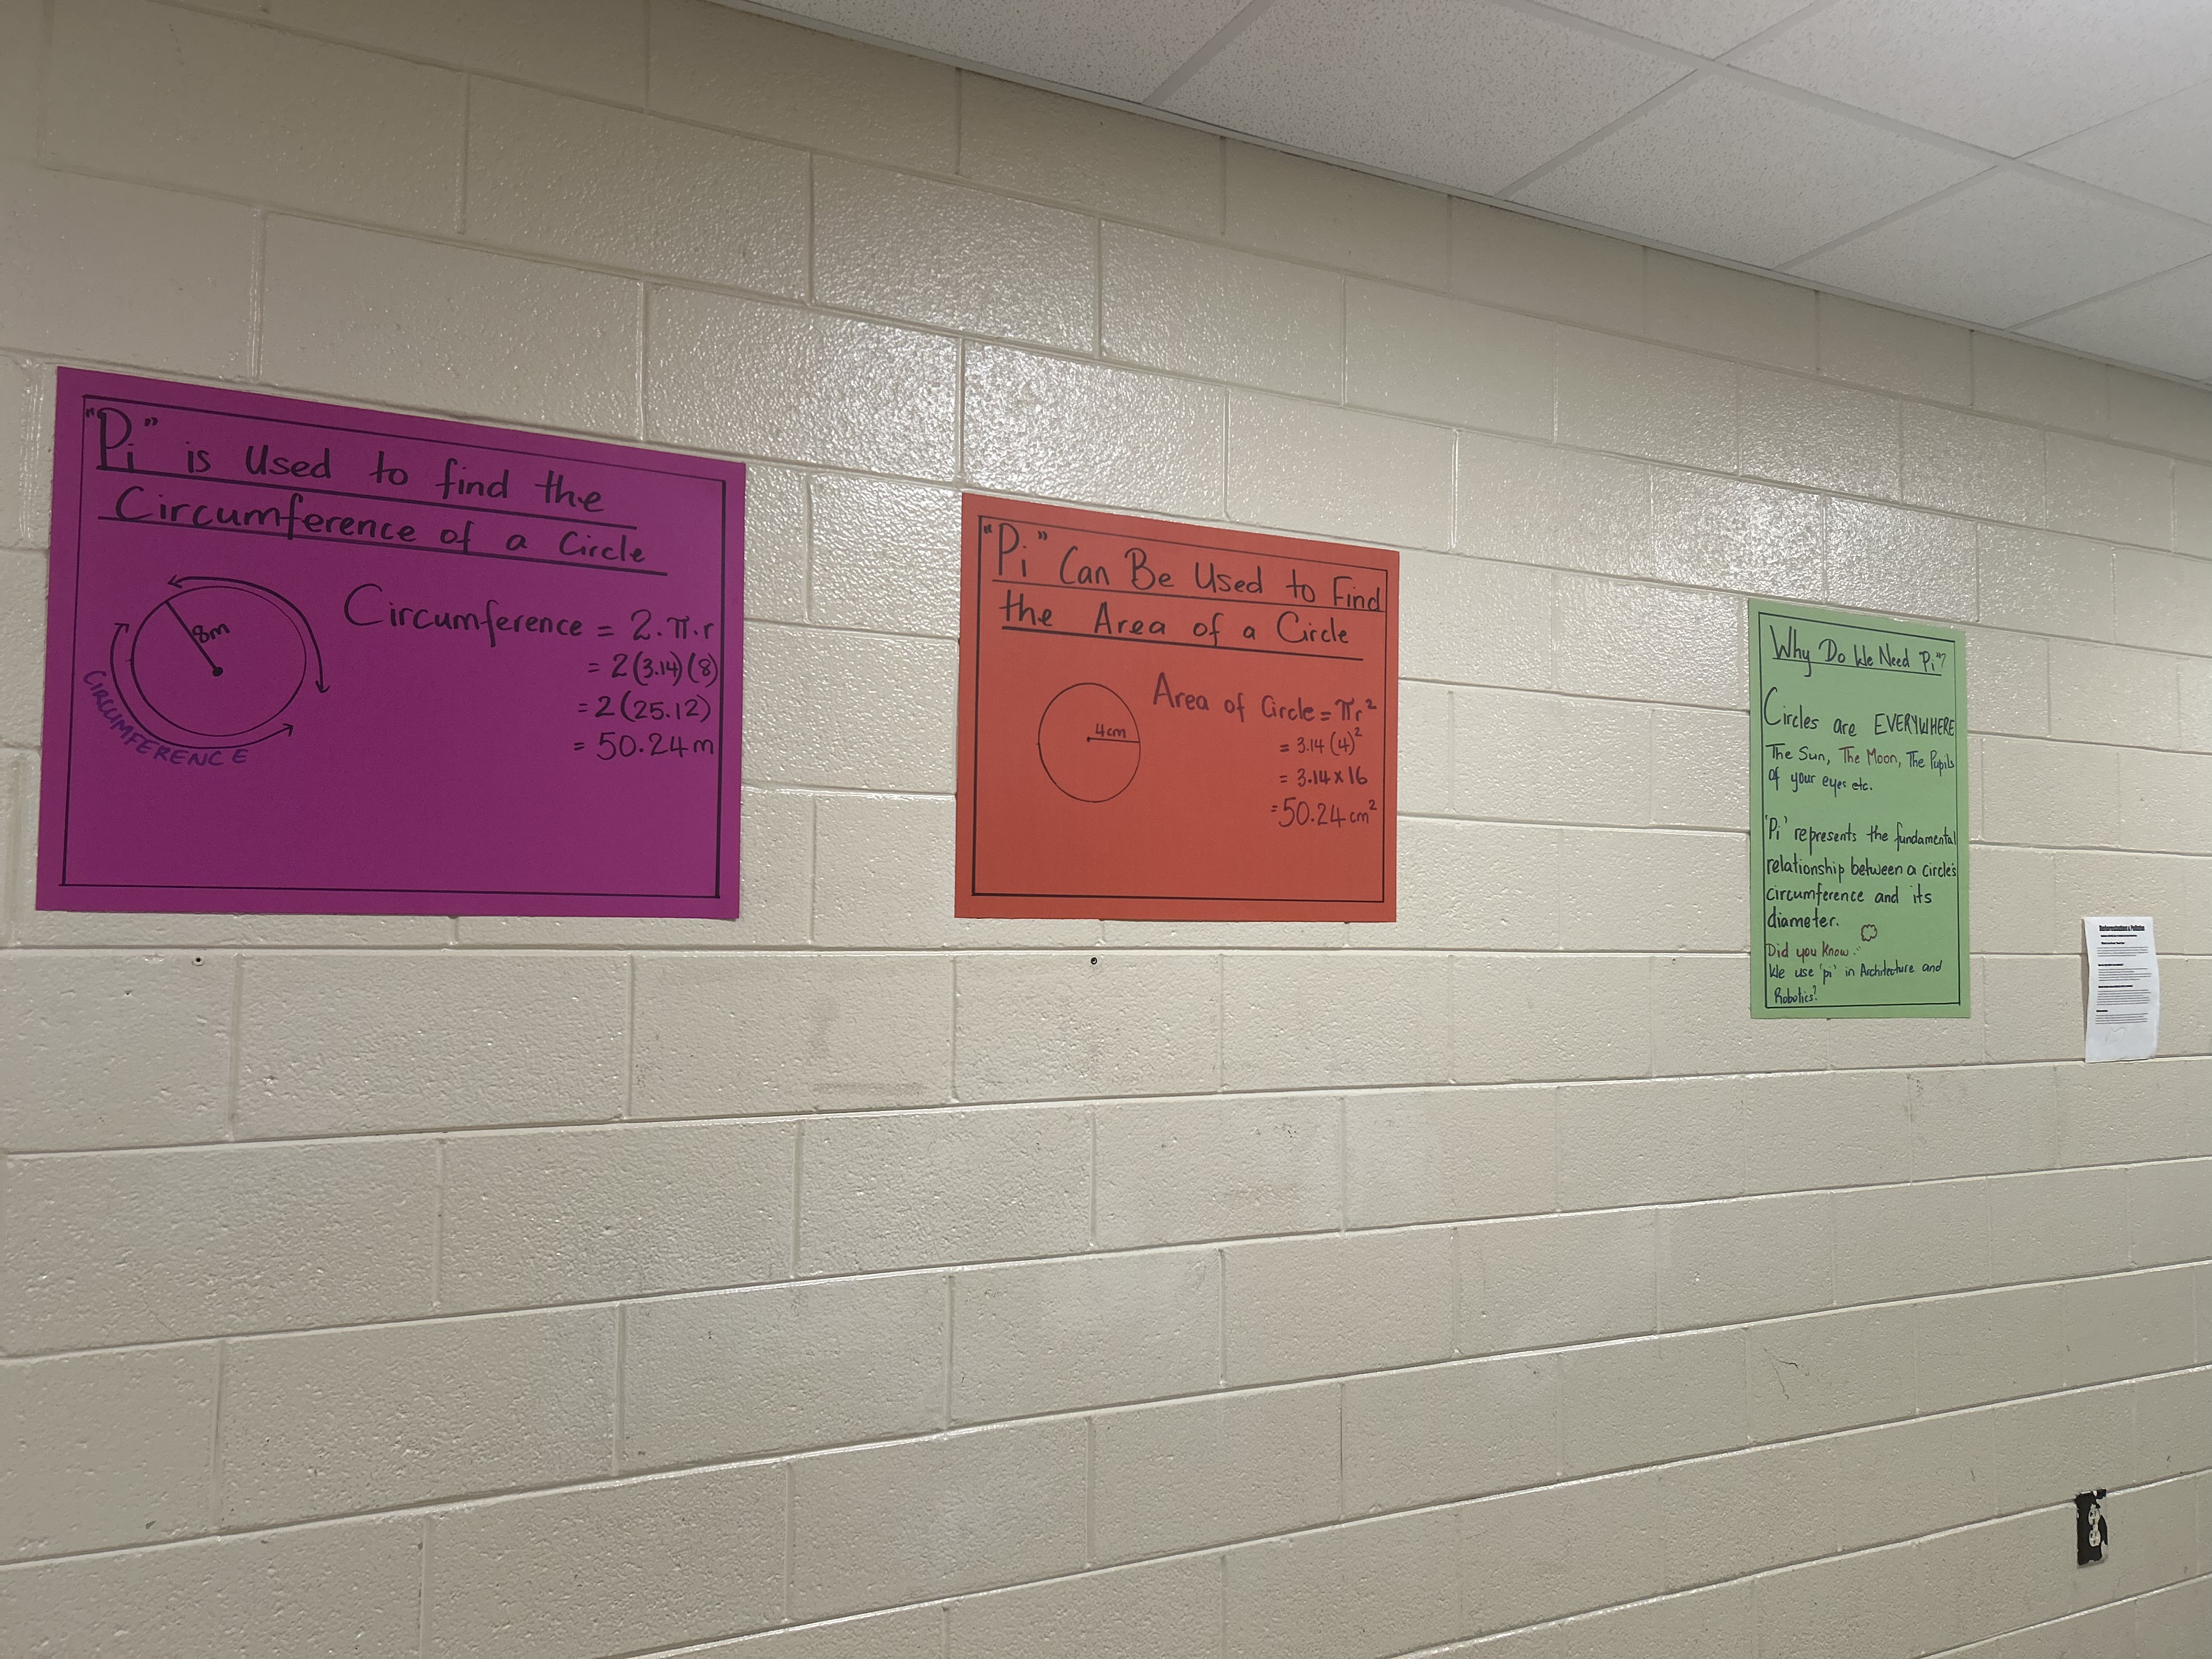 "Pi" is Used to find the
Circumference of a Circle
8m
CIRCUMFERENCE
Circumference = 2.π.r
= 2(3.14)(8)
= 2(25.12)
= 50.24m
"Pi" Can Be Used to Find
the Area of a Circle
4cm
Area of Circle = πr²
= 3.14(4)²
= 3.14x16
= 50.24cm²
Why Do We Need "Pi"?
Circles are EVERYWHERE
The Sun, The Moon, The Pupils
of your eyes etc.
'Pi' represents the fundamental
relationship between a circle's
circumference and its
diameter.
Did you Know:
We use 'pi' in Architecture and
Robotics?